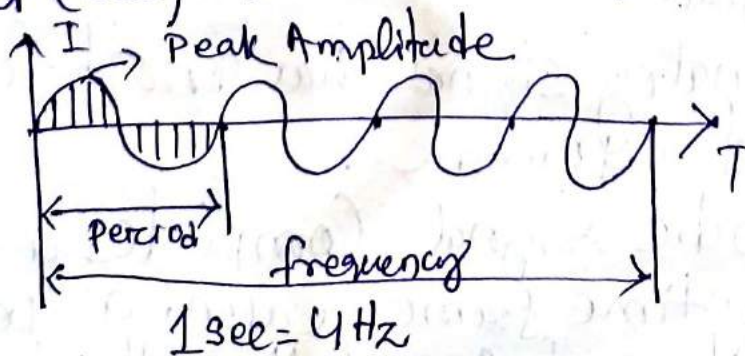 I
Peak Amplitude
T
Perciod
frequency
1 see = 4 Hz